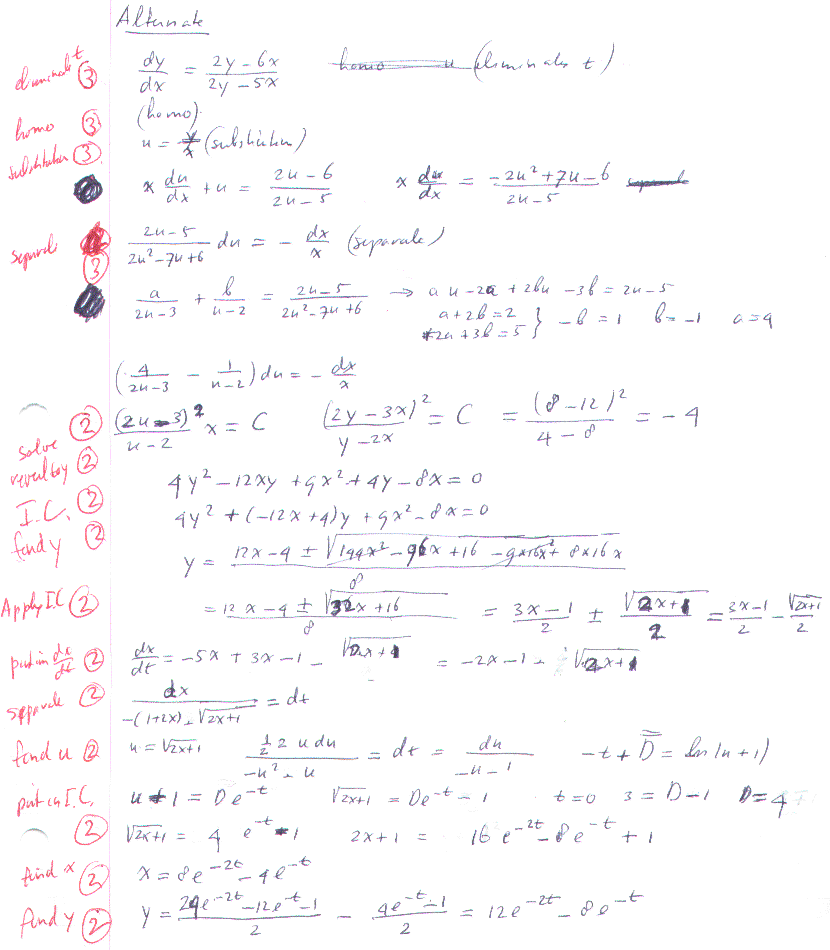 Alternate
eliminate t ③ dy/dx = (2y - 6x)/(2y - 5x) homo u (eliminates t)
homo ③ (homo)
substitution ③ u = y/x (substitution)
x du/dx + u = (2u - 6)/(2u - 5) x du/dx = (-2u² + 7u - 6)/(2u - 5) separate
separate ③ (2u - 5)/(2u² - 7u + 6) du = - dx/x (separate)
a/(2u - 3) + b/(u - 2) = (2u - 5)/(2u² - 7u + 6) → au - 2a + 2bu - 3b = 2u - 5
a + 2b = 2
2a + 3b = 5 } - b = 1 b = -1 a = 4
(4/(2u - 3) - 1/(u - 2)) du = - dx/x
solve ② (2u - 3)²/(u - 2) x = C (2y - 3x)²/(y - 2x) = C = (8 - 12)²/(4 - 8) = -4
revert to y ② 4y² - 12xy + 9x² + 4y - 8x = 0
I.C. ② 4y² + (-12x + 4)y + 9x² - 8x = 0
find y ② y = (12x - 4 ± √(144x² - 96x + 16 - 9×16x² + 8×16x))/8
Apply I.C ② = (12x - 4 ± √(32x + 16))/8 = (3x - 1)/2 ± √(2x + 1)/2 = (3x - 1)/2 - √(2x + 1)/2
put in dx/dt ② dx/dt = -5x + 3x - 1 - √(2x + 1) = -2x - 1 - √(2x + 1)
separate ② dx/(-(1 + 2x) - √(2x + 1)) = dt
find u ② u = √(2x + 1) (½ 2u du)/(-u² - u) = dt = du/(-u - 1) -t + D̄ = ln(u + 1)
put in I.C. ② u + 1 = De^-t √(2x + 1) = De^-t - 1 t = 0 3 = D - 1 D = 4
√(2x + 1) = 4 e^-t - 1 2x + 1 = 16e^-2t - 8e^-t + 1
find x ② x = 8e^-2t - 4e^-t
find y ② y = (24e^-2t - 12e^-t - 1)/2 - (4e^-t - 1)/2 = 12e^-2t - 8e^-t